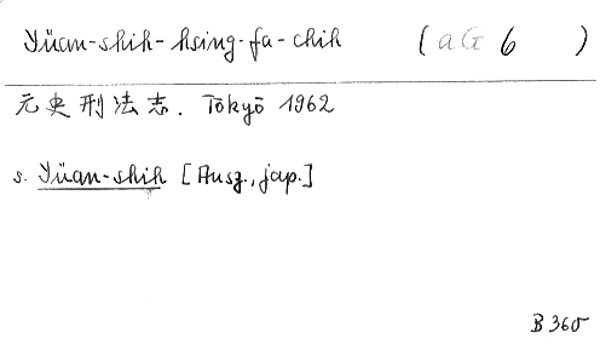 Yüan-shih-hsing-fa-chih (aG 6 )
元史刑法志. Tōkyō 1962
s. Yüan-shih [Ausz., jap.]
B 365